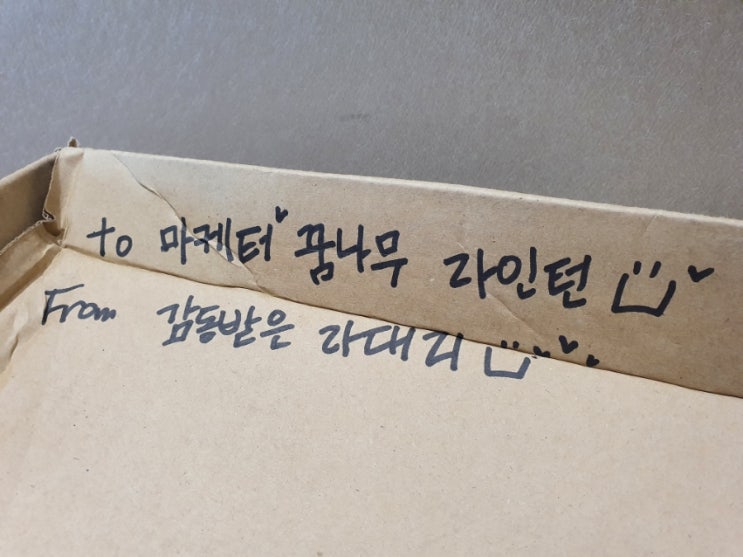 to 마케터 꿈나무 라인턴
From 감동받은 라대리